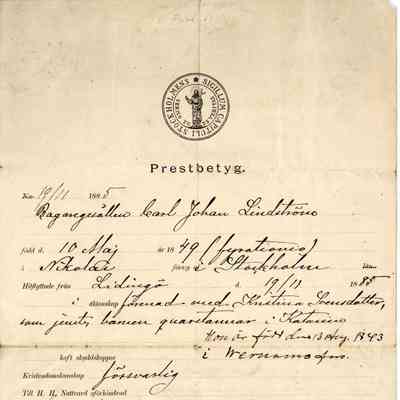 SIGILLUM CAPITULI STOCKHOLMENS
Prestbetyg.
No. 19/11 1885
Carl Johan Lindström
född d. 10 Maj år 1849 (fyrationio)
i Nikolai förs:g i Stockholm
Hitflyttade från Lidingö d. 19/11 1885
i äktenskap förenad med Kristina Svensdotter,
som jemte barnen qvarstannar i Katarina
Hon är född den 13 Aug. 1843
i Wernamo
haft skyddskoppor
Kristendomskunskap försvarlig
Till H. H. Nattvard oförhindrad